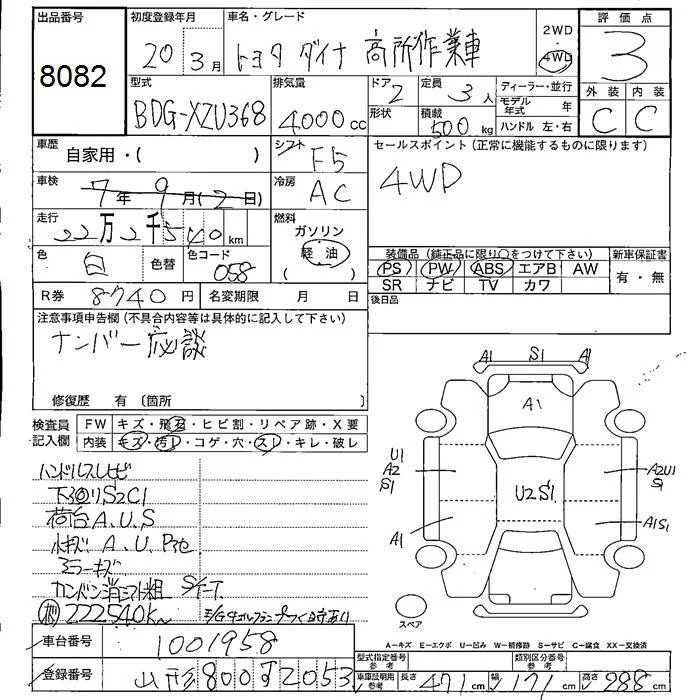 出品番号 初度登録年月 車名・グレード 2WD 4WD 評価点
8082 20年 3月 トヨタ ダイナ 高所作業車 3
型式 排気量 ドア 定員 ディーラー・並行 外装 内装
BDG-XZU368 4000cc 2 3人 モデル年式 年 C C
形状 積載 500kg ハンドル 左・右
車歴 自家用・( ) シフト F5 セールスポイント(正常に機能するものに限ります)
車検 7年9月(2日) 冷房 AC 4WD
走行 22万2千540km 燃料 ガソリン 軽油 ( )
色 白 色替 色コード 058 装備品(純正品に限り○をつけて下さい) 新車保証書
PS PW ABS エアB AW 有・無
SR ナビ TV カワ
R券 8740円 名変期限 月 日 後日品
注意事項申告欄(不具合内容等は具体的に記入して下さい)
ナンバー応談
修復歴 有(箇所 )
検査員記入欄 FW キズ・飛石・ヒビ割・リペア跡・X要
内装 キズ・汚レ・コゲ・穴・スレ・キレ・破レ
ハンドルスレサビ
下回りS2C1
荷台A.U.S
小キズ A.U.
ミラーキズ
222540K
A1 S1 A1
A1
U1
A2
S1
U2S1
A2U1
S1
A1
A1S1
スペア
A-キズ E-エクボ U-凹み W-補修跡 S-サビ C-腐食 XX-交換済
車台番号 1001958
型式指定番号 参考 類別区分番号 参考
登録番号 山形800す2053
車庫証明用 参考 長さ 471cm 幅 171cm 高さ 288cm